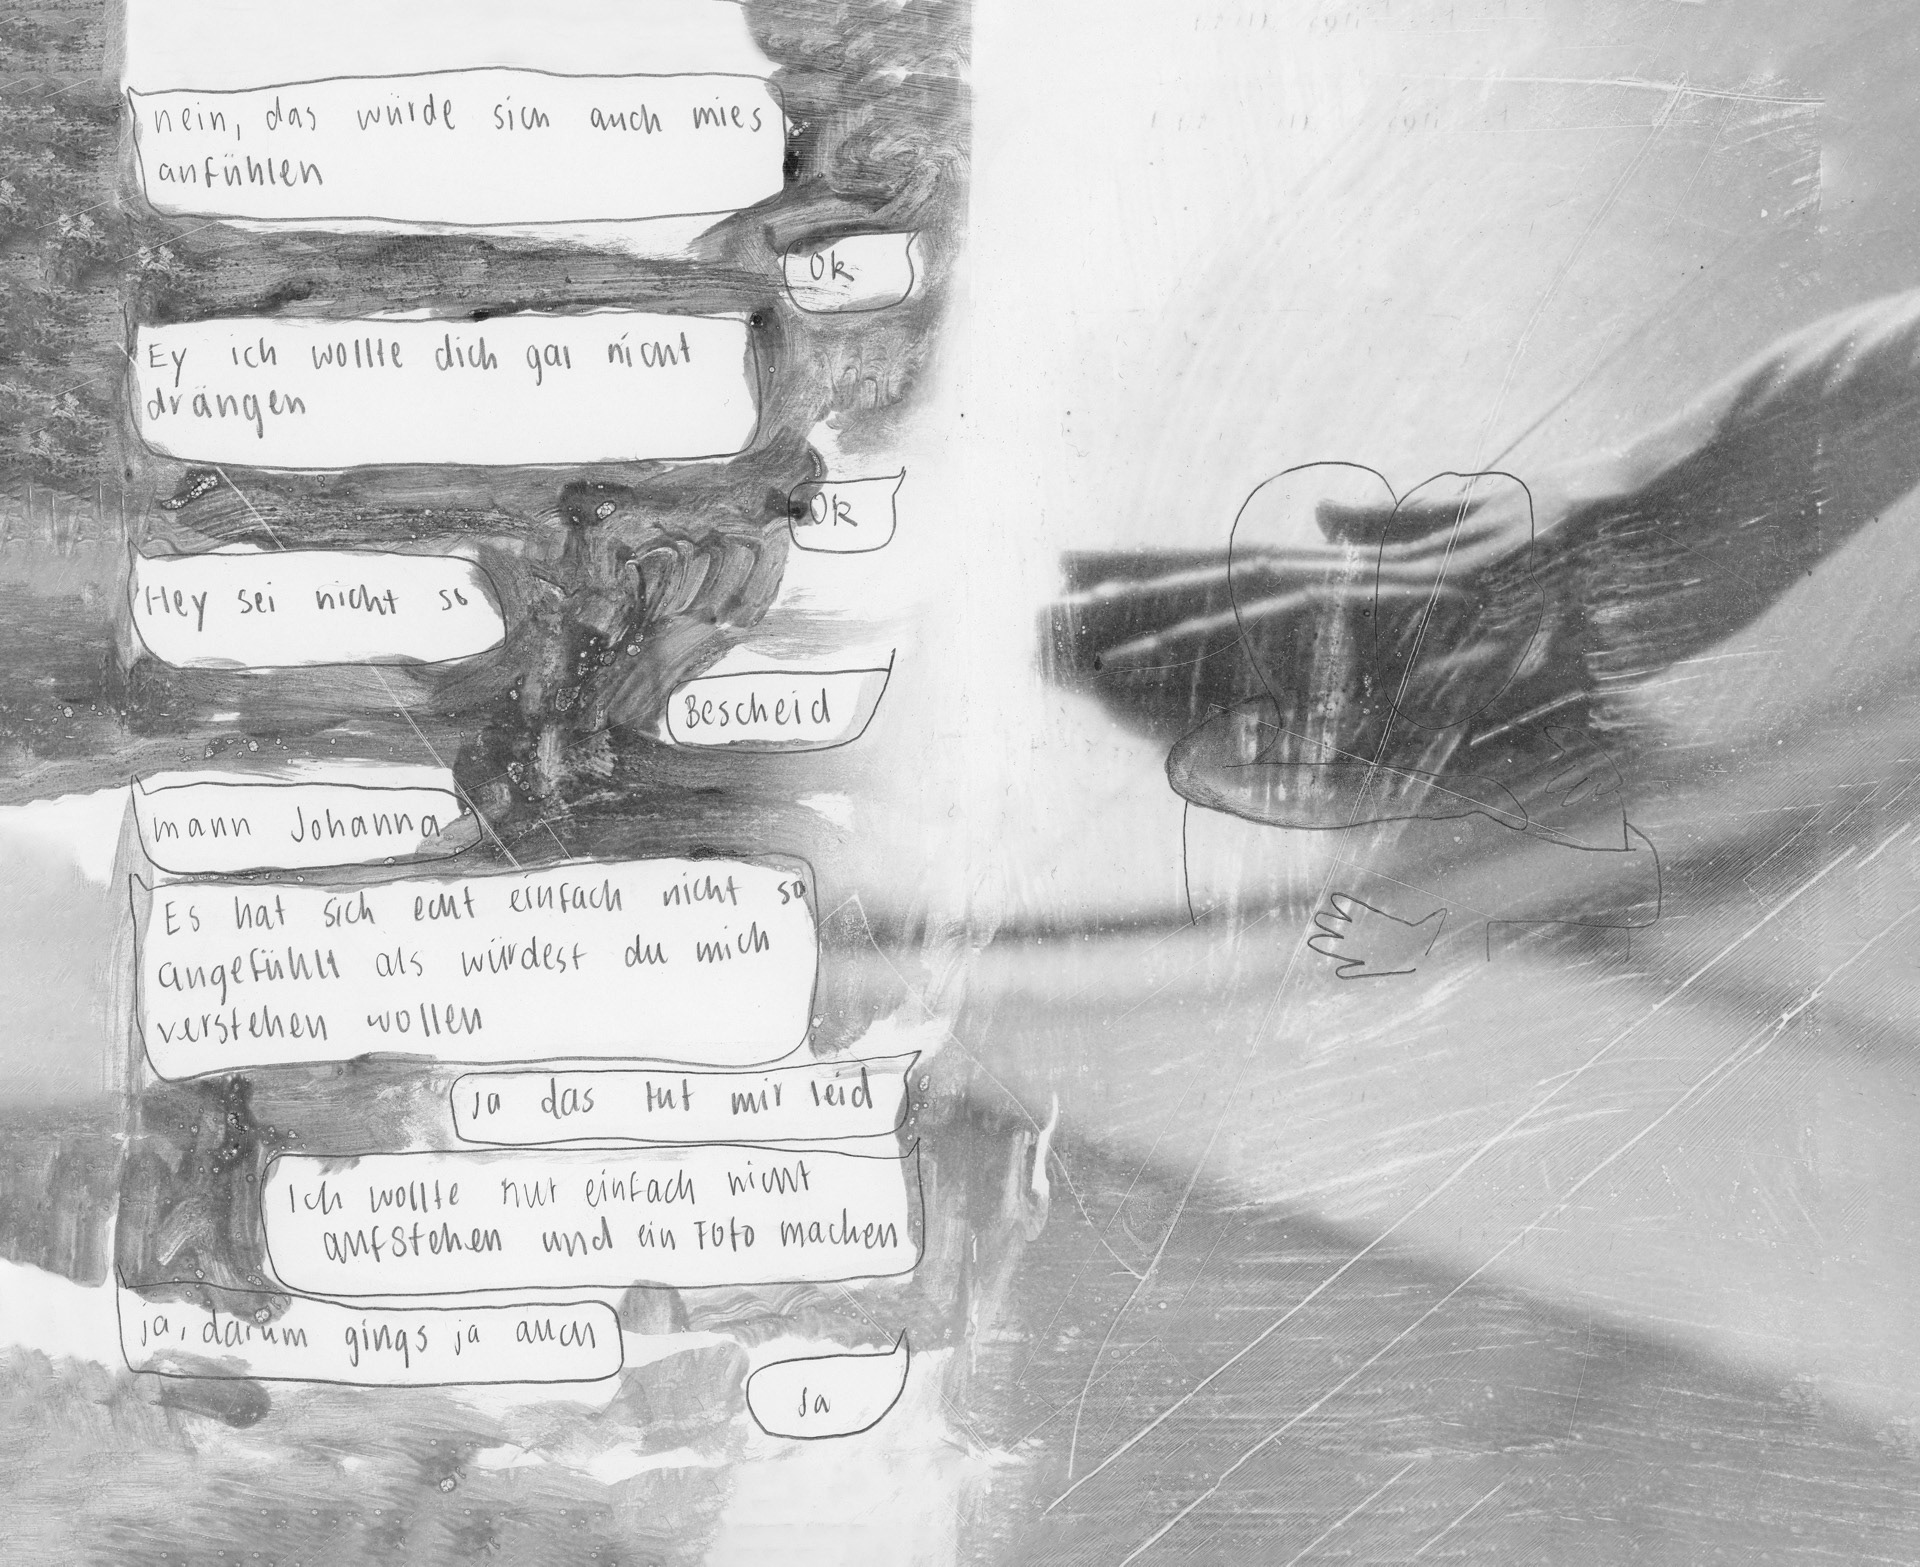 nein, das würde sich auch mies
anfühlen
Ok
Ey ich wollte dich gar nicht
drängen
Ok
Hey sei nicht so
Bescheid
mann Johanna
Es hat sich echt einfach nicht so
angefühlt als würdest du mich
verstehen wollen
ja das tut mir leid
Ich wollte nur einfach nicht
aufstehen und ein Foto machen
ja, darum gings ja auch
Ja